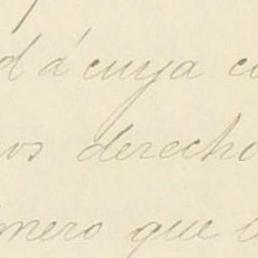 d á cuya co
os derecho
mero que l